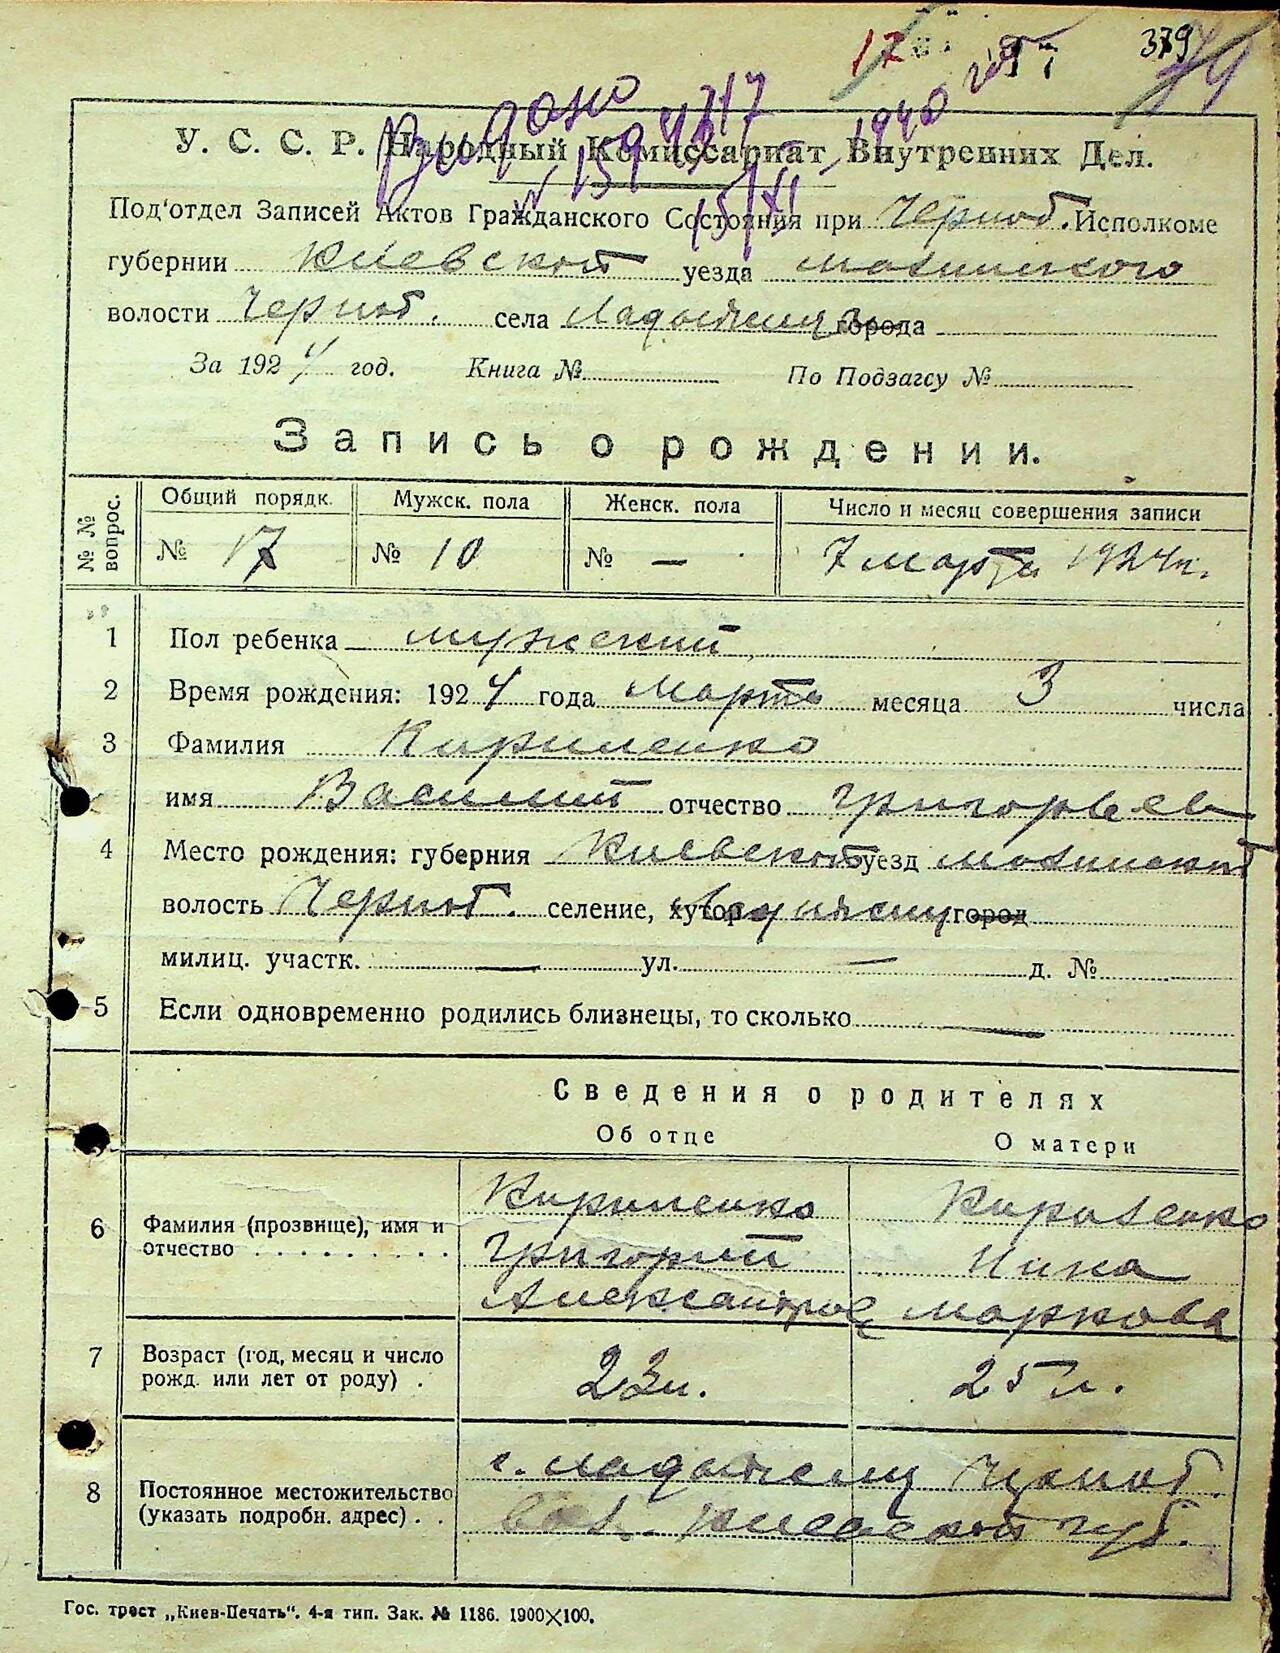 17 379
Видано
№ 159 15/XI - 1940 год
У. С. С. Р. Народный Комиссариат Внутренних Дел.
Под'отдел Записей Актов Гражданского Состояния при Черноб. Исполкоме
губернии Киевской уезда
волости Черноб. села города
За 1924 год. Книга № По Подзагсу №
Запись о рождении.
№ № вопрос. Общий порядк. Мужск. пола Женск. пола Число и месяц совершения записи
№ 17 № 10 № — 7 марта 1924 г.
1 Пол ребенка мужский
2 Время рождения: 1924 года марта месяца 3 числа
3 Фамилия Кириленко
имя Василий отчество Григорьев
4 Место рождения: губерния Киевской уезд
волость Черноб. селение, хутор город
милиц. участк. — ул. — д. №
5 Если одновременно родились близнецы, то сколько —
Сведения о родителях
Об отце О матери
6 Фамилия (прозвище), имя и отчество . . . . . . . . .
Кириленко Кириленко
Григорий Нина
Александров Маркова
7 Возраст (год, месяц и число рожд. или лет от роду) . 23 л. 25 л.
8 Постоянное местожительство (указать подробн. адрес) . .
с. Черноб.
вол. Киевской губ.
Гос. трест „Киев-Печать". 4-я тип. Зак. № 1186. 1900×100.